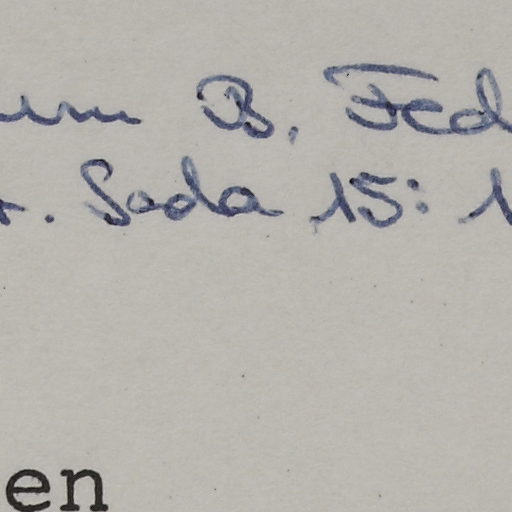 B. Fed
. Soda 15: 1
en